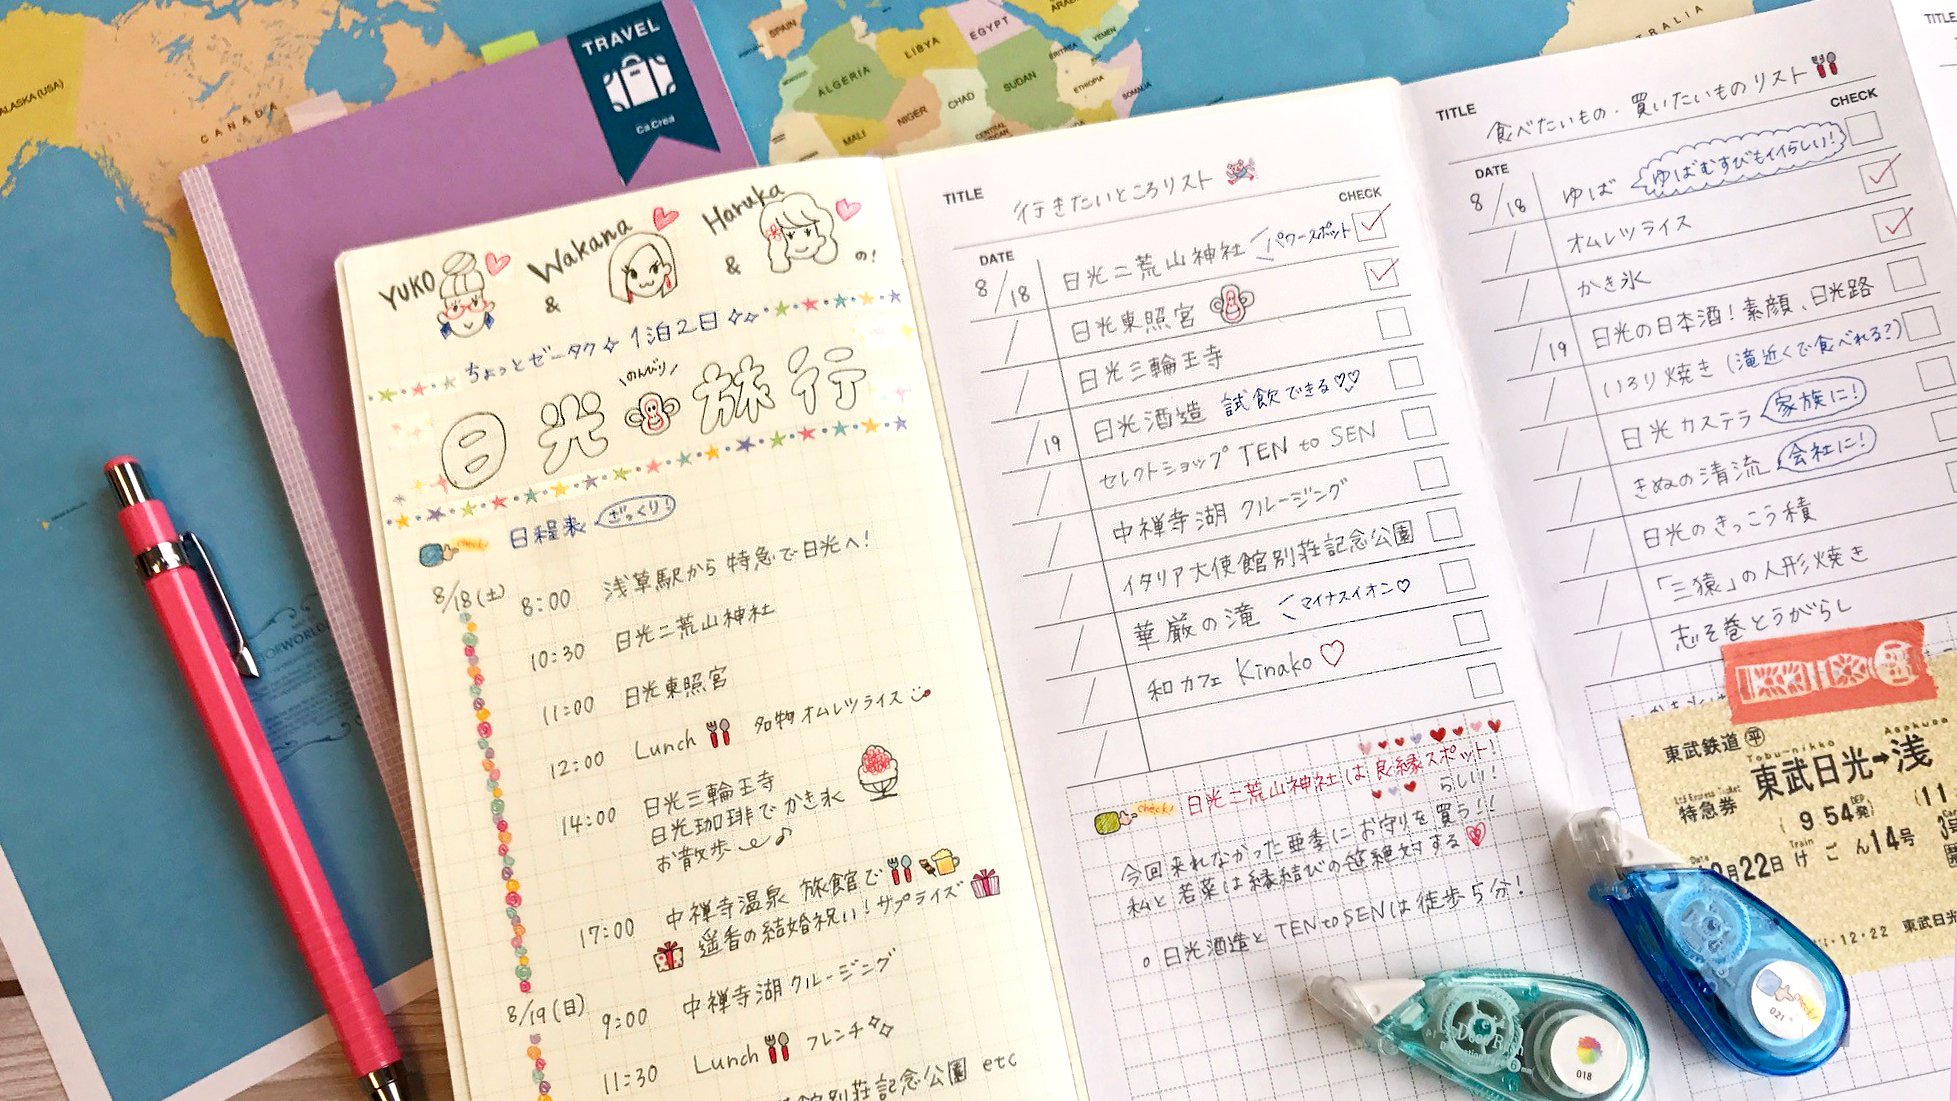 ALASKA (USA)
CANADA
SPAIN
ALGERIA
LIBYA
EGYPT
MALI
NIGER
CHAD
SUDAN
ERITREA
YEMEN
ETHIOPIA
SOMALIA
TRAVEL
Ca.Crea
YUKO & Wakana & Haruka の!
ちょっとゼータク 1泊2日
のんびり
日光旅行
check!
日程表 ざっくり!
8/18(土)
8:00 浅草駅から特急で日光へ!
10:30 日光二荒山神社
11:00 日光東照宮
12:00 Lunch 名物オムレツライス
14:00 日光三輪王寺
日光珈琲でかき氷
お散歩♪
17:00 中禅寺温泉 旅館で
遥香の結婚祝い!サプライズ
8/19(日)
9:00 中禅寺湖クルージング
11:30 Lunch フレンチ
館別荘記念公園 etc
TITLE 行きたいところリスト
DATE CHECK
8/18 日光二荒山神社 パワースポット
日光東照宮
日光三輪王寺
日光酒造 試飲できる♡♡
/19 セレクトショップ TEN to SEN
中禅寺湖 クルージング
イタリア大使館別荘記念公園
華厳の滝 マイナスイオン♡
和カフェ Kinako♡
check!
日光二荒山神社は良縁スポット!
らしい!
今回来れなかった亜季にお守りを買う!!
私と若菜は縁結びの笹絶対する
○日光酒造とTEN to SENは徒歩5分!
TITLE 食べたいもの・買いたいものリスト
DATE CHECK
8/18 ゆば ゆばむすびもイイらしい!
オムレツライス
かき氷
日光の日本酒!素顔、日光路
/19 いろり焼き(滝近くで食べれる?)
日光カステラ 家族に!
きぬの清流 会社に!
日光のきっこう積
「三猿」の人形焼き
志そ巻とうがらし
東武鉄道 平
Tobu-nikko Asakusa
東武日光→浅
特急券
9 54発
月22日 けごん14号
12・22 東武日光
018
021
TITLE